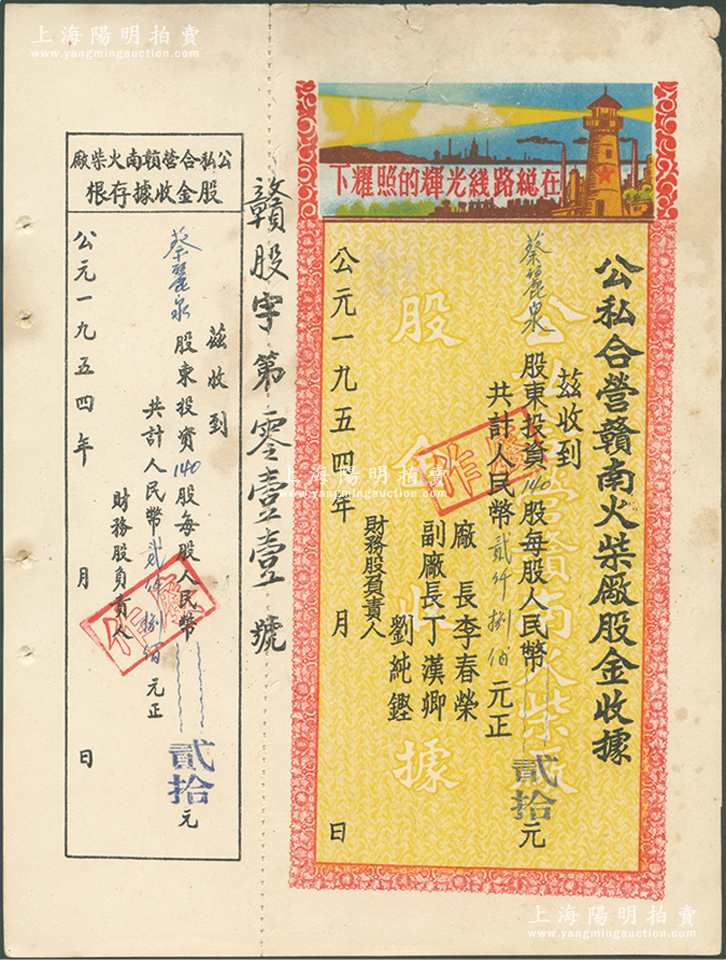 上海陽明拍賣
www.yangmingauction.com
在総路线光輝的照耀下
公私合营贛南火柴廠股金收據
兹收到
蔡麗泉股東投資140股每股人民幣貳拾元
共計人民幣貳仟捌佰元正
廠長李春榮
副廠長丁漢卿
劉純鏗
財務股負責人
公元一九五四年 月 日
公私合营贛南火柴廠
股金收據
作廢
贛股字第零壹壹號
公私合营贛南火柴廠
股金收據存根
兹收到
蔡麗泉股東投資140股每股人民幣貳拾元
共計人民幣貳仟捌佰元正
財務股負責人
公元一九五四年 月 日
作廢
上海陽明拍賣
www.yangmingauction.com
上海陽明拍賣
www.yangmingauction.com
上海陽明拍賣
www.yangmingauction.com